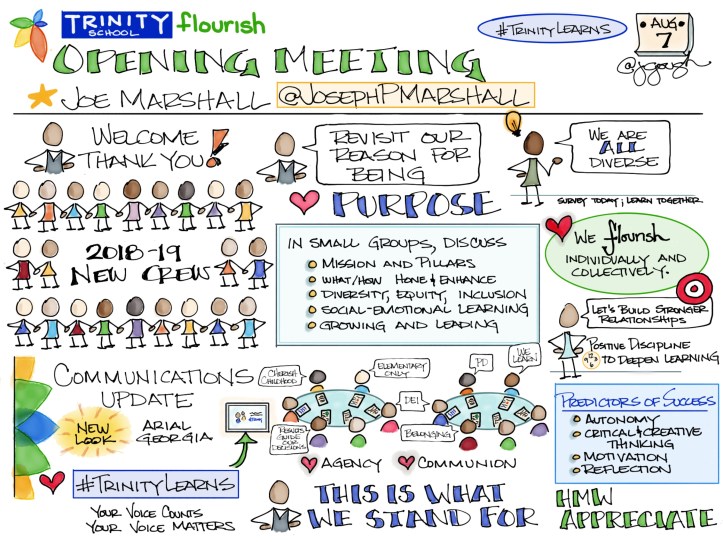 TRINITY
SCHOOL
flourish
#TRINITYLEARNS
AUG
7
@jgough
OPENING MEETING
JOE MARSHALL @JOSEPHPMARSHALL
WELCOME
THANK YOU!
REVISIT OUR
REASON FOR
BEING
PURPOSE
WE ARE
ALL
DIVERSE
SURVEY TODAY; LEARN TOGETHER
2018-19
NEW CREW
IN SMALL GROUPS, DISCUSS
MISSION AND PILLARS
WHAT/HOW HONE & ENHANCE
DIVERSITY, EQUITY, INCLUSION
SOCIAL-EMOTIONAL LEARNING
GROWING AND LEADING
WE flourish
INDIVIDUALLY AND
COLLECTIVELY.
LET'S BUILD STRONGER
RELATIONSHIPS
POSITIVE DISCIPLINE
TO DEEPEN LEARNING
COMMUNICATIONS
UPDATE
NEW
LOOK
ARIAL
GEORGIA
#TRINITYLEARNS
YOUR VOICE COUNTS
YOUR VOICE MATTERS
CHERISH
CHILDHOOD
ELEMENTARY
ONLY
RESULTS
GUIDE
OUR
DECISIONS
DEI
PD
WE
LEARN
BELONGING
AGENCY
COMMUNION
THIS IS WHAT
WE STAND FOR
PREDICTORS OF SUCCESS
AUTONOMY
CRITICAL & CREATIVE
THINKING
MOTIVATION
REFLECTION
HMW
APPRECIATE